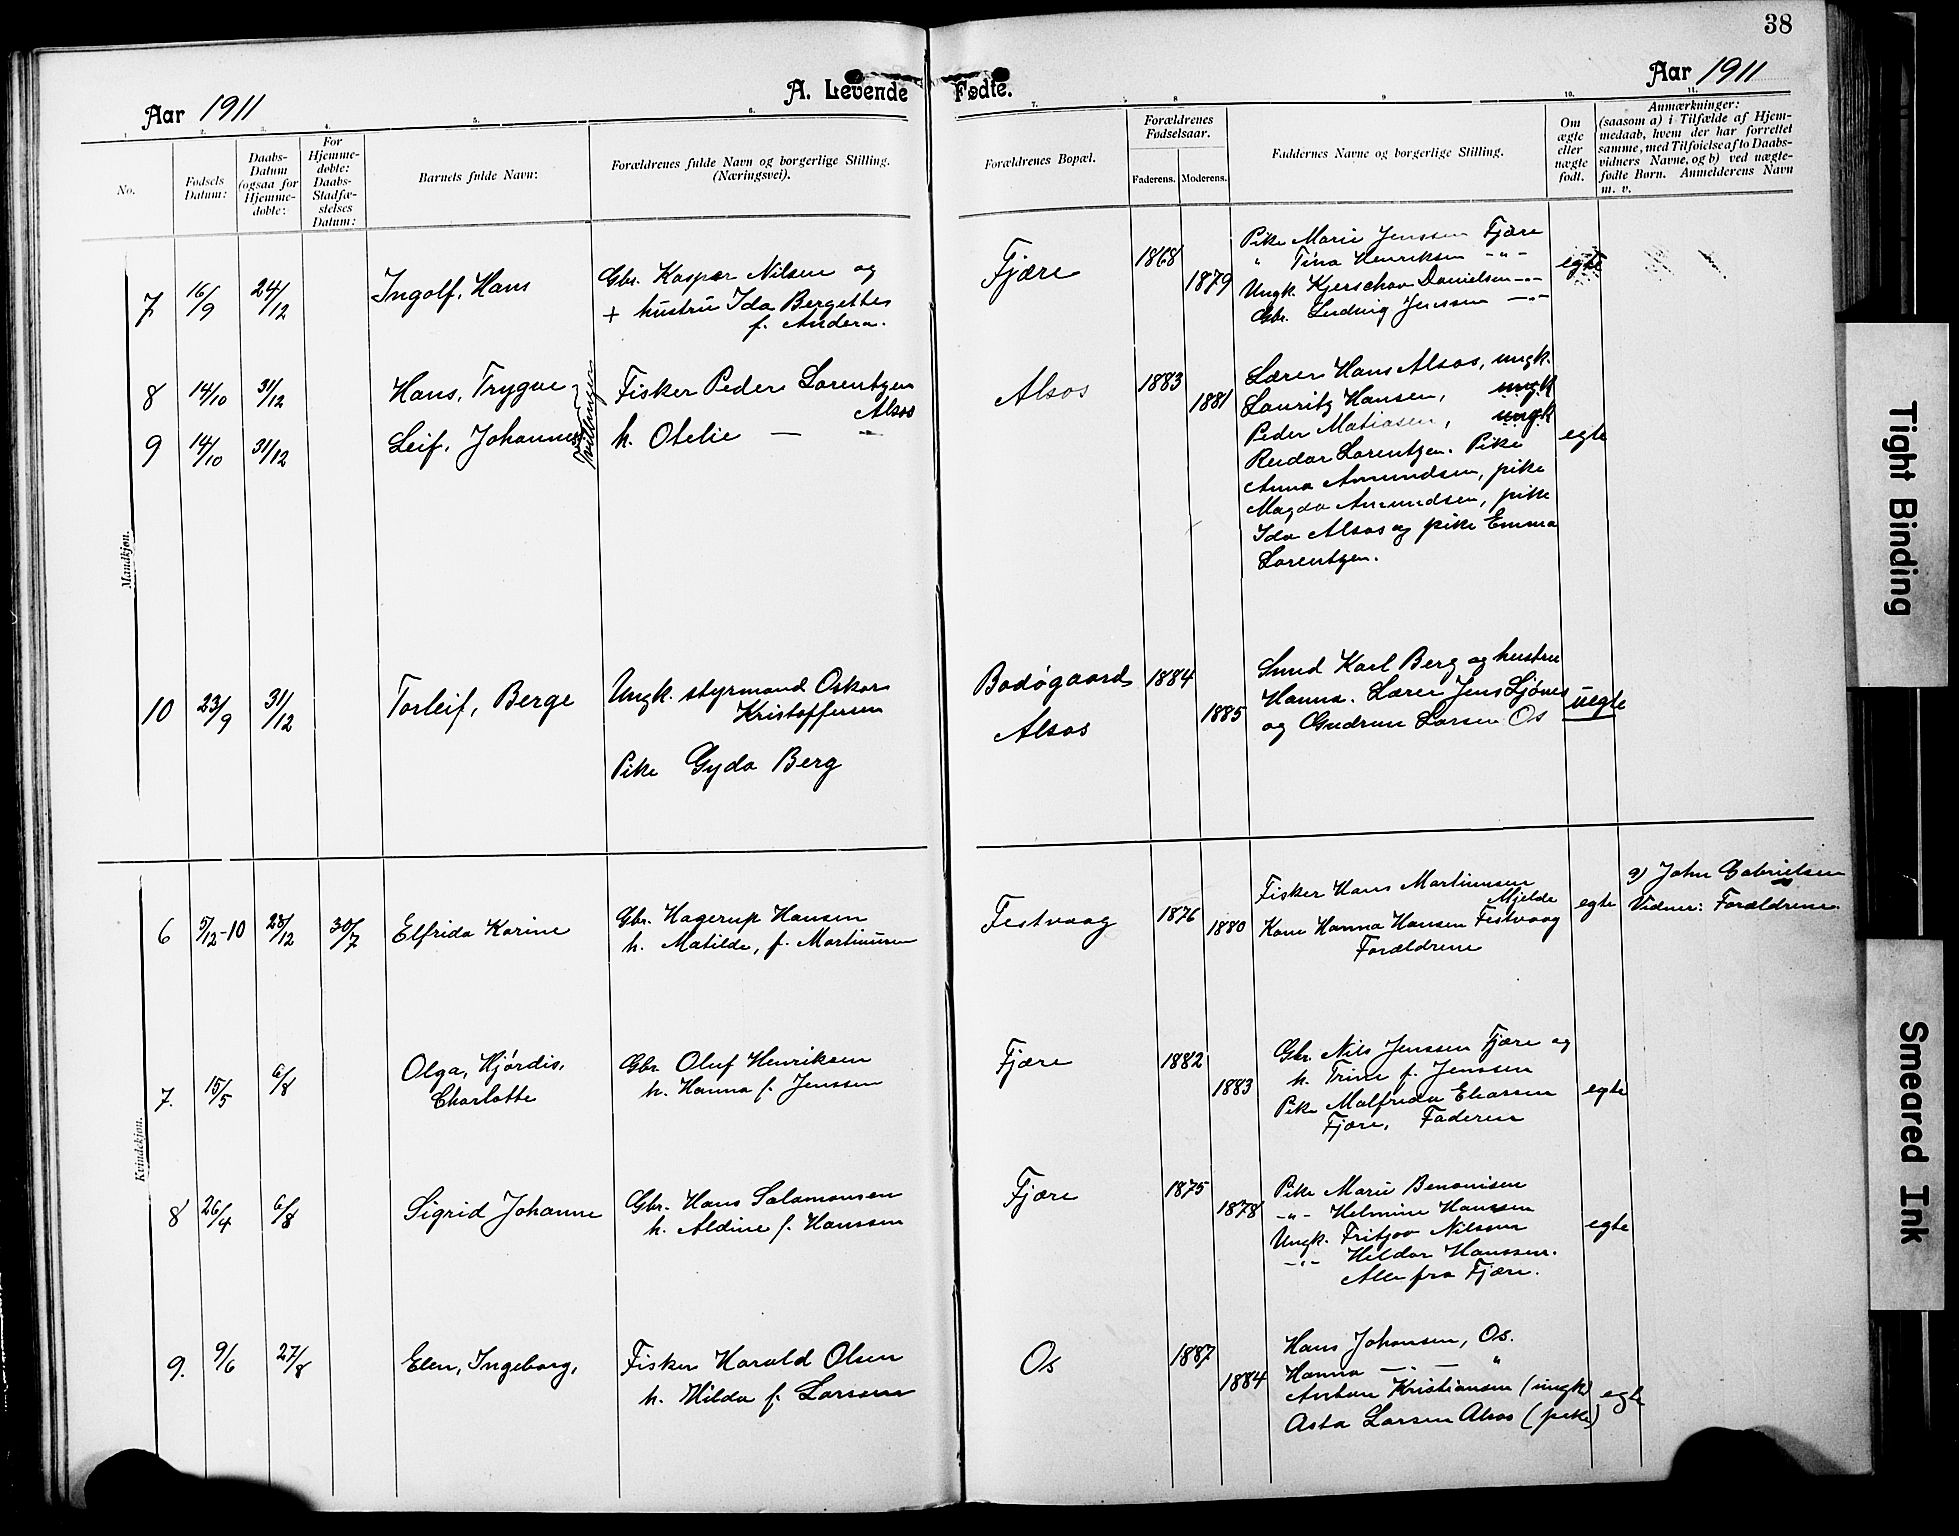 38
Aar 1911
A. Levende Fødte.
Aar 1911
1. 2. 3. 4. 5. 6. 7. 8 9 10. 11.
No.
Fødsels Datum:
Daabs-Datum (ogsaa for Hjemme-døbte:
For Hjemme-døbte: Daabs-Stadfæ-stelses Datum:
Barnets fulde Navn:
Forældrenes fulde Navn og borgerlige Stilling. (Næringsvei).
Forældrenes Bopæl.
Forældrenes Fødselsaar.
Faderens. Moderens.
Faddernes Navne og borgerlige Stilling.
Om ægte eller uægte født.
Anmærkninger:
(saasom a) i Tilfælde af Hjem-
medaab, hvem der har forrettet
samme, med Tilføielse af to Daabs-
vidners Navne, og b) ved uægte-
fødte Børn. Anmelderens Navn
m. v.
Mandkjøn.
7 16/9 24/12 Ingolf, Hans
Gbr. Kaspar Nilsen og
+ hustru Ida Bergettes
f. Andera.
Fjære 1868 1879
Pike Marie Jenssen Fjære
" Tina Henriksen -"-
Ungk. Kjerschov Danielsen -"-
Gbr. Ludvig Jenssen -"-
egte
8 14/10 31/12 Hans, Trygve
9 14/10 31/12 Leif, Johannes
Tvillinger
Fisker Peder Lorentzen
Alsos
h. Otelie — -"-
Alsos 1883 1881
Lærer Hans Alsos, ungk.
Lauritz Hansen, ungk
Peder Matiasen, ungk
Reidar Lorentzen. Pike
Anna Amundsen, pike
Magda Amundsen, pike
Ida Alsos og pike Emma
Lorentzen.
egte
10 23/9 31/12 Torleif, Berge
Ungk. styrmand Oskar
Kristoffersen
Pike Gyda Berg
Bodøgaard 1884
Alsos 1885
Smed Karl Berg og hustru
Hanna. Lærer Jens Sjönes
og Gudrun Larsen Os
uegte
Kvindekjøn.
6 5/12-10 28/12 30/7 Elfrida Karine
Gbr. Hagerup Hansen
h. Matilde, f. Martinusen
Festvaag 1876 1880
Fisker Hans Martinusen
Mjelde
Kone Hanna Hansen Festvaag
Forældrene
egte
a) John Gabrielsen
Vidner: Forældrene.
7. 15/5 6/8 Olga, Hjørdis,
Charlotte
Gbr. Oluf Henriksen
h. Hanna f. Jenssen
Fjære 1882 1883
Gbr. Nils Jenssen Fjære og
h. Trine f. Jenssen
Pike Malfrida Eliassen
Fjære, Faderen
egte
8 26/4 6/8 Sigrid Johanne
Gbr. Hans Salamonsen
h. Aldine f. Hanssen
Fjære 1875 1878
Pike Marie Benonisen
-"- Helmine Hanssen
Ungk. Fritjov Nilssen
-"- Hildor Hanssen.
Alle fra Fjære.
egte
9. 9/6 27/8 Elen, Ingeborg,
Fisker Harald Olsen
h. Hilda f. Larssen
Os 1887 1884
Hans Johansen, Os.
Hanna -"- "
Anton Kristiansen (ungk)
Asta Larsen Alsos (pike)
egte
Tight Binding
Smeared Ink